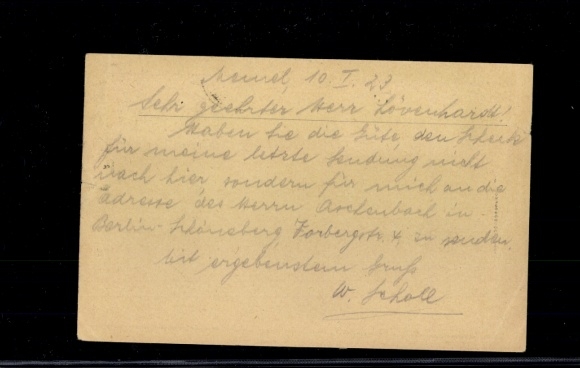 Memel, 10. I. 23
Sehr geehrter Herr Lövenhardt!
Haben Sie die Güte, den Scheck
für meine letzte Sendung nicht
nach hier, sondern für mich an die
Adresse des Herrn Aschenbach in
Berlin-Schöneberg, Vorbergstr. 4, zu senden.
Mit ergebenstem Gruß
W. Scholl